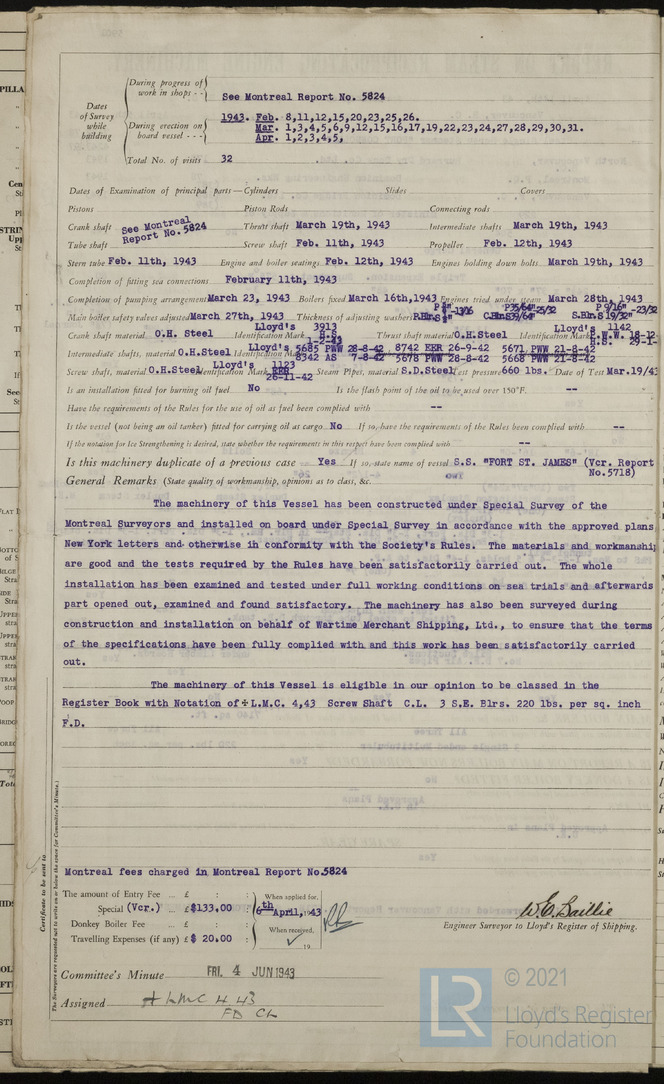 During progress of work in shops - - See Montreal Report No. 5824
Dates of Survey while building
During erection on board vessel - - - 1943. Feb. 8,11,12,15,20,23,25,26.
Mar. 1,3,4,5,6,9,12,15,16,17,19,22,23,24,27,28,29,30,31.
Apr. 1,2,3,4,5,
Total No. of visits 32
Dates of Examination of principal parts—Cylinders Slides Covers
Pistons Piston Rods Connecting rods
Crank shaft See Montreal Report No. 5824 Thrust shaft March 19th, 1943 Intermediate shafts March 19th, 1943
Tube shaft Screw shaft Feb. 11th, 1943 Propeller Feb. 12th, 1943
Stern tube Feb. 11th, 1943 Engine and boiler seatings Feb. 12th, 1943 Engines holding down bolts March 19th, 1943
Completion of fitting sea connections February 11th, 1943
Completion of pumping arrangements March 23, 1943 Boilers fixed March 16th, 1943 Engines tried under steam March 28th, 1943
Main boiler safety valves adjusted March 27th, 1943 Thickness of adjusting washers
Crank shaft material O.H. Steel Identification Mark Lloyd's 3913 H.S. 1-2-43 Thrust shaft material O.H.Steel Identification Mark Lloyd's 1142
Intermediate shafts, material O.H.Steel Identification Marks Lloyd's 5685 PWW 28-8-42 8742 EER 26-9-42 5671 PWW 21-8-42
8342 AS 7-8-42 5678 PWW 28-8-42 5668 PWW 21-8-42
Screw shaft, material O.H.Steel Identification Mark Lloyd's 1123 EER 26-11-42 Steam Pipes, material S.D.Steel Test pressure 660 lbs. Date of Test Mar.19/43
Is an installation fitted for burning oil fuel No Is the flash point of the oil to be used over 150°F. --
Have the requirements of the Rules for the use of oil as fuel been complied with --
Is the vessel (not being an oil tanker) fitted for carrying oil as cargo No If so, have the requirements of the Rules been complied with --
If the notation for Ice Strengthening is desired, state whether the requirements in this respect have been complied with --
Is this machinery duplicate of a previous case Yes If so, state name of vessel S.S. "FORT ST. JAMES" (Vcr. Report No.5718)
General Remarks (State quality of workmanship, opinions as to class, &c.
The machinery of this Vessel has been constructed under Special Survey of the
Montreal Surveyors and installed on board under Special Survey in accordance with the approved plans
New York letters and otherwise in conformity with the Society's Rules. The materials and workmanship
are good and the tests required by the Rules have been satisfactorily carried out. The whole
installation has been examined and tested under full working conditions on sea trials and afterwards
part opened out, examined and found satisfactory. The machinery has also been surveyed during
construction and installation on behalf of Wartime Merchant Shipping, Ltd., to ensure that the terms
of the specifications have been fully complied with and this work has been satisfactorily carried
out.
The machinery of this Vessel is eligible in our opinion to be classed in the
Register Book with Notation of + L.M.C. 4,43 Screw Shaft C.L. 3 S.E. Blrs. 220 lbs. per sq. inch
F.D.
Certificate to be sent to
Montreal fees charged in Montreal Report No.5824
The amount of Entry Fee ... £ : :
Special (Vcr.) ... £ $133.00 :
Donkey Boiler Fee ... £ : :
Travelling Expenses (if any) £ $ 20.00 :
When applied for,
6th April, 1943
When received,
19
W.E. Baillie
Engineer Surveyor to Lloyd's Register of Shipping.
Committee's Minute FRI. 4 JUN 1943
Assigned + LMC 4.43
FD CL
LR
© 2021
Lloyd's Register
Foundation